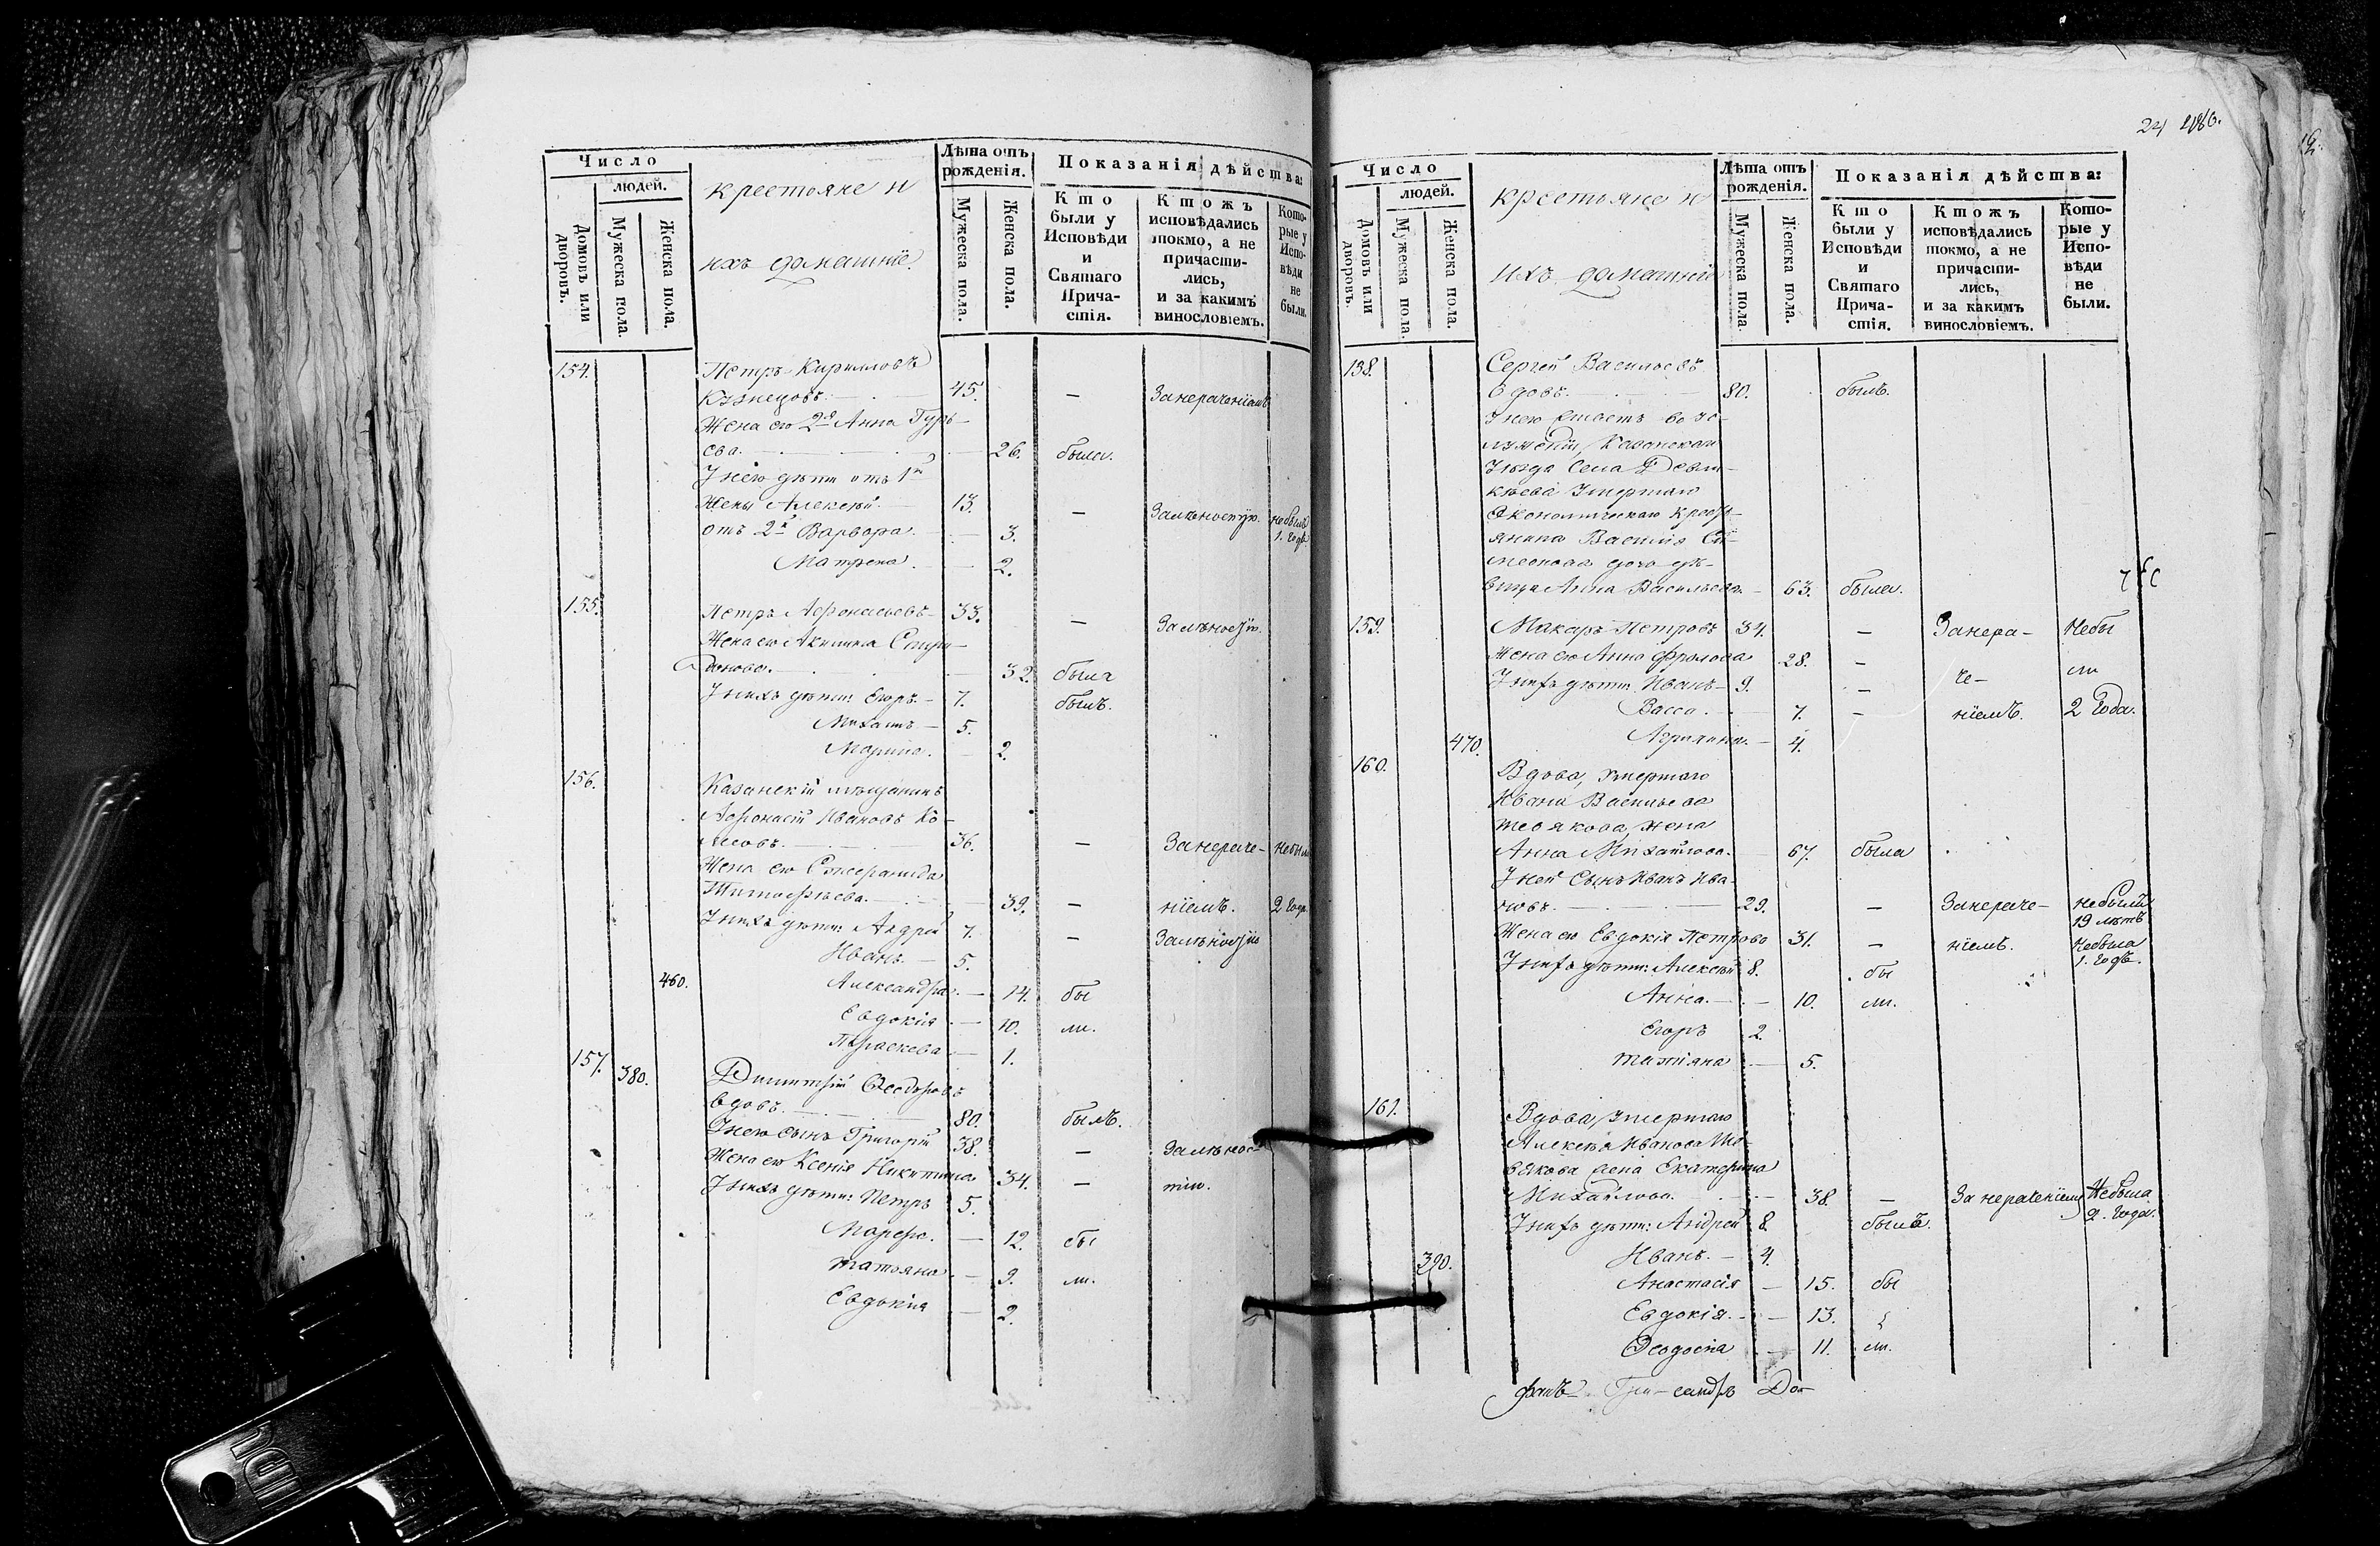 Число
людей.
Домовъ или дворовъ.
Мужеска пола.
Женска пола.
крестьяне и
ихъ домашніе.
Лѣта отъ рожденія.
Мужеска пола.
Женска пола.
Показанія дѣйства:
Кто были у Исповѣди и Святаго Прича-стія.
Ктожъ исповѣдались токмо, а не причасти-лись, и за какимъ винословіемъ.
Кото-рые у Испо-вѣди не были.
154. Петръ Кирилловъ
Кузнецовъ. 45. — За нераченіемъ
Жена его 2я Анна Гурь-
ева. 26. была.
У него дѣти отъ 1й
жены Алексѣй 13. — За лѣностію. не былъ
отъ 2й Варвара. 3. 1. годъ
Матрена. 2.
155. Петръ Афонасьевъ 33. — За лѣностію.
Жена его Акилина Спири-
донова. 32. была
У нихъ дѣти: Егоръ. 7. былъ.
Михаилъ 5.
Марина. 2.
156. Казанскій мѣщанинъ
Афонасій Ивановъ Ко-
36. — За нераче- не были
Жена его
Тимофѣева. 39. — ніемъ. 2 года
У нихъ дѣти: Андрей 7. — За лѣностію
Иванъ. 5.
460. Александра. 14. бы
Евдокія 10. ли.
Параскева 1.
157. 380. Димитрій Ѳеодоровъ
вдовъ. 80. былъ.
У него сынъ Григорій 38. — За лѣнос-
Жена его Ксенія Никитина 34. — тію.
У нихъ дѣти: Петръ 5.
Марфа. 12. бы
Татьяна 9. ли.
Евдокія 2.
24
Число
людей.
Домовъ или дворовъ.
Мужеска пола
Женска пола.
крестьяне и
ихъ домашніе
Лѣта отъ рожденія.
Мужеска пола.
Женска пола.
Показанія дѣйства:
Кто были у Исповѣди и Святаго Прича-стія.
Ктожъ исповѣдались токмо, а не причасти-лись, и за какимъ винословіемъ.
Кото-рые у Испо-вѣди не были.
138. Сергей Васильевъ
вдовъ. 80. былъ.
У него
Казанскаго
Уѣзда Села
умершаго
Экономическаго кресть-
янина Василія Си-
меонова дочь дѣ-
вица Анна Васильева. 63. была.
159. Макаръ Петровъ 34. — За нера- Не бы
Жена его Анна Фролова 28. — че- ли
У нихъ дѣти: Иванъ 9. — ніемъ. 2 года.
Васса. 7. —
470. 4.
160. Вдова, умершаго
Ивана Васильева
жена
Анна Михайлова. 67. была
У ней сынъ Иванъ Ива-
новъ. 29. — За нераче- не былъ 19 лѣтъ
Жена его Евдокія Петрова 31. — ніемъ. не была 1. годъ.
У нихъ дѣти: Алексѣй 8. бы
Анна. 10. ли.
Егоръ 2.
Татіяна 5.
161. Вдова, умершаго
Алексѣя Иванова
жена Екатерина
Михайлова. 38. — За нераченіемъ Не была 2. года.
У нихъ дѣти: Андрей 8. былъ.
390. Иванъ. 4.
Анастасія 15. бы
Евдокія. 13.
Ѳеодосія 11. ли.